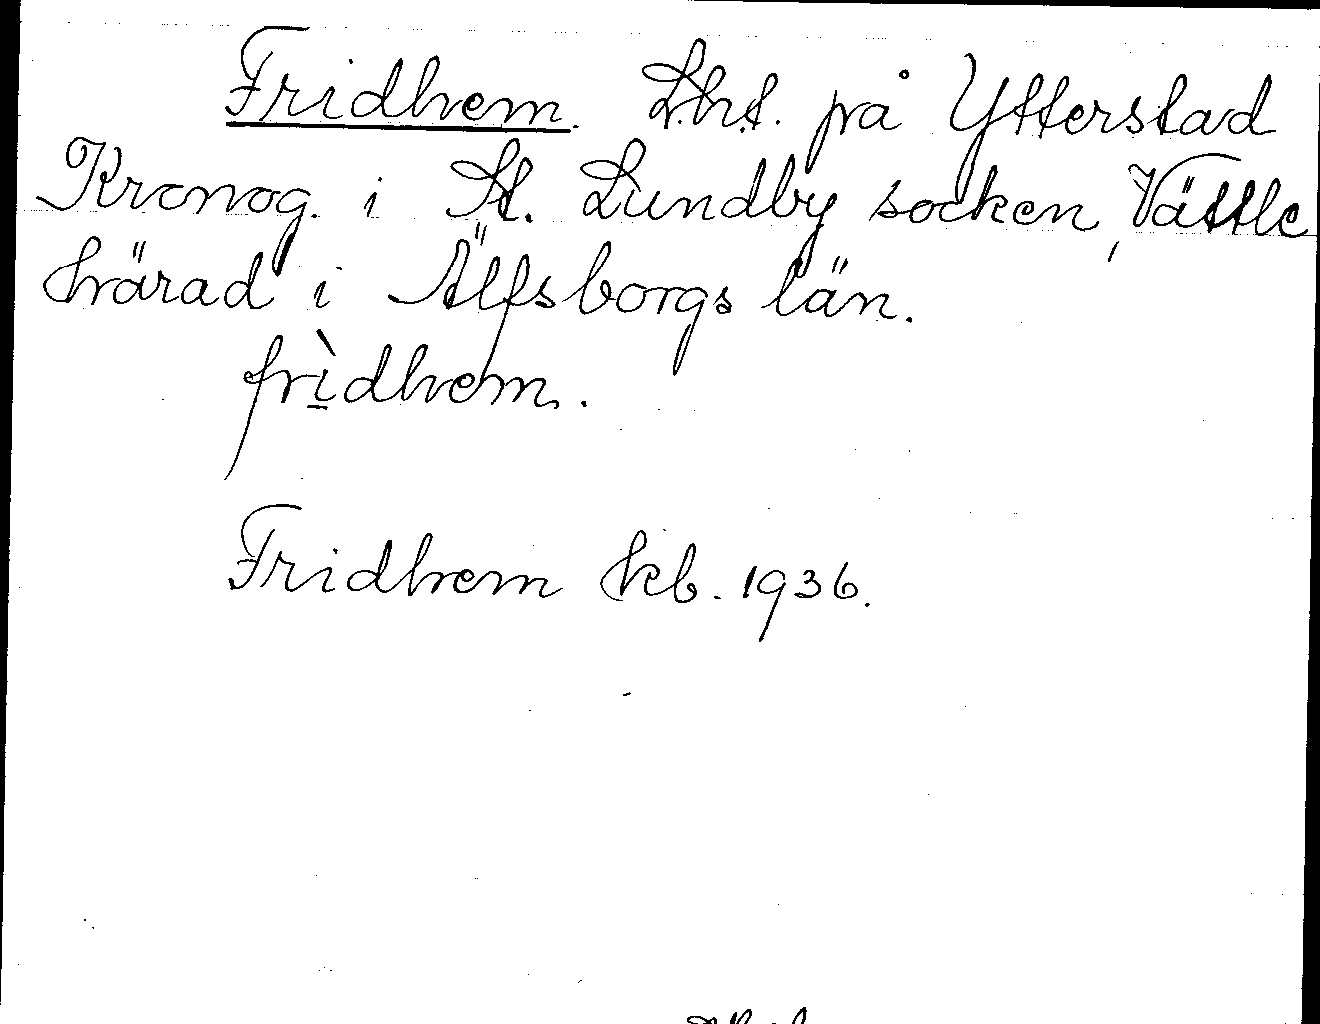 Fridhem. Lht. på Ytterstad
Kronog. i St. Lundby socken, Vättle
härad i Älfsborgs län.
frìdhem.
Fridhem hkb. 1936.